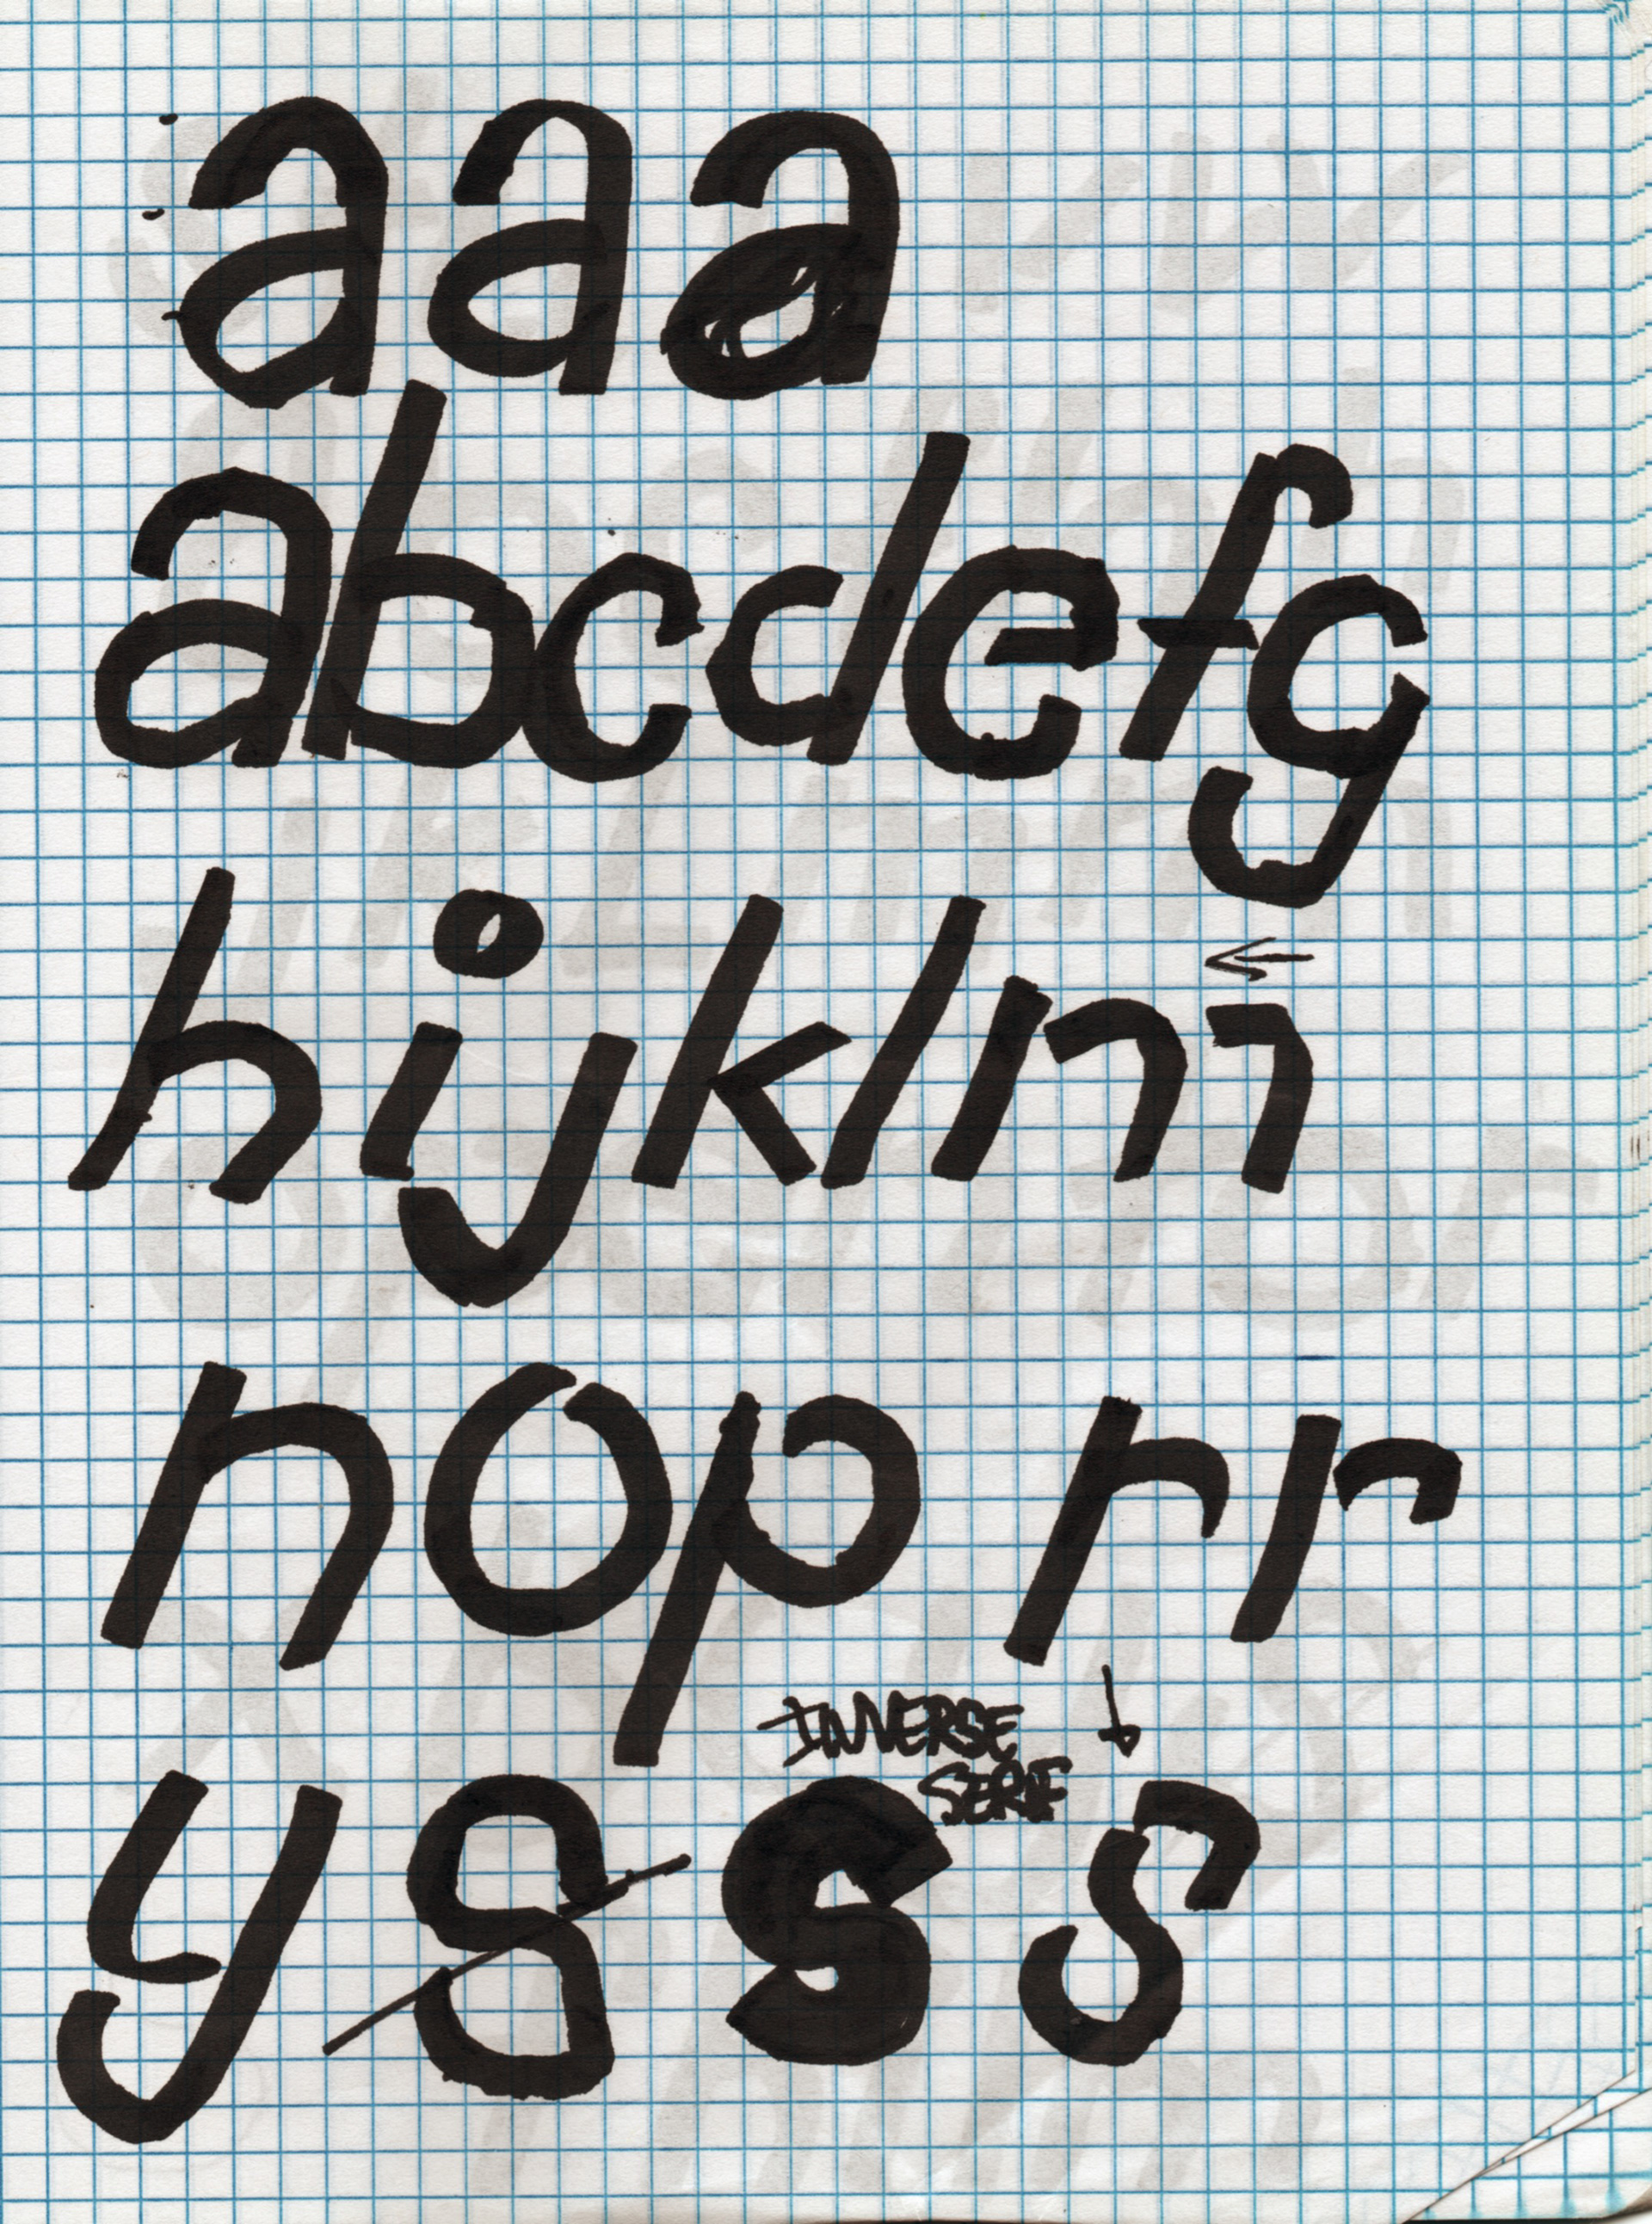 aaa
abcdefg
hijklm
nop rr
INVERSE
SERIF
ysss